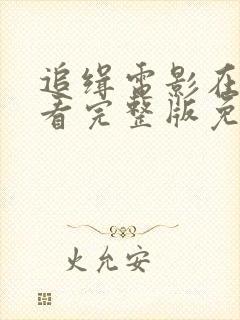 追缉电影在
看完整版免
火允安